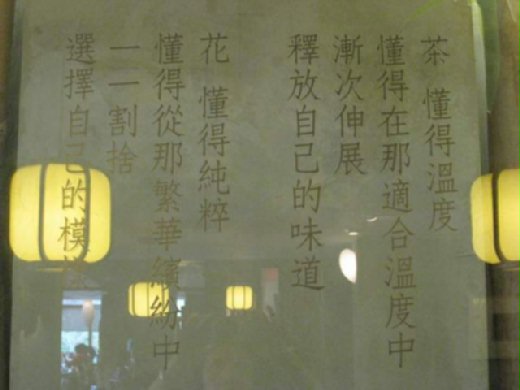 茶 懂得溫度
懂得在那適合溫度中
漸次伸展
釋放自己的味道
花 懂得純粹
懂得從那繁華繽紛中
一一割捨
選擇自己的模